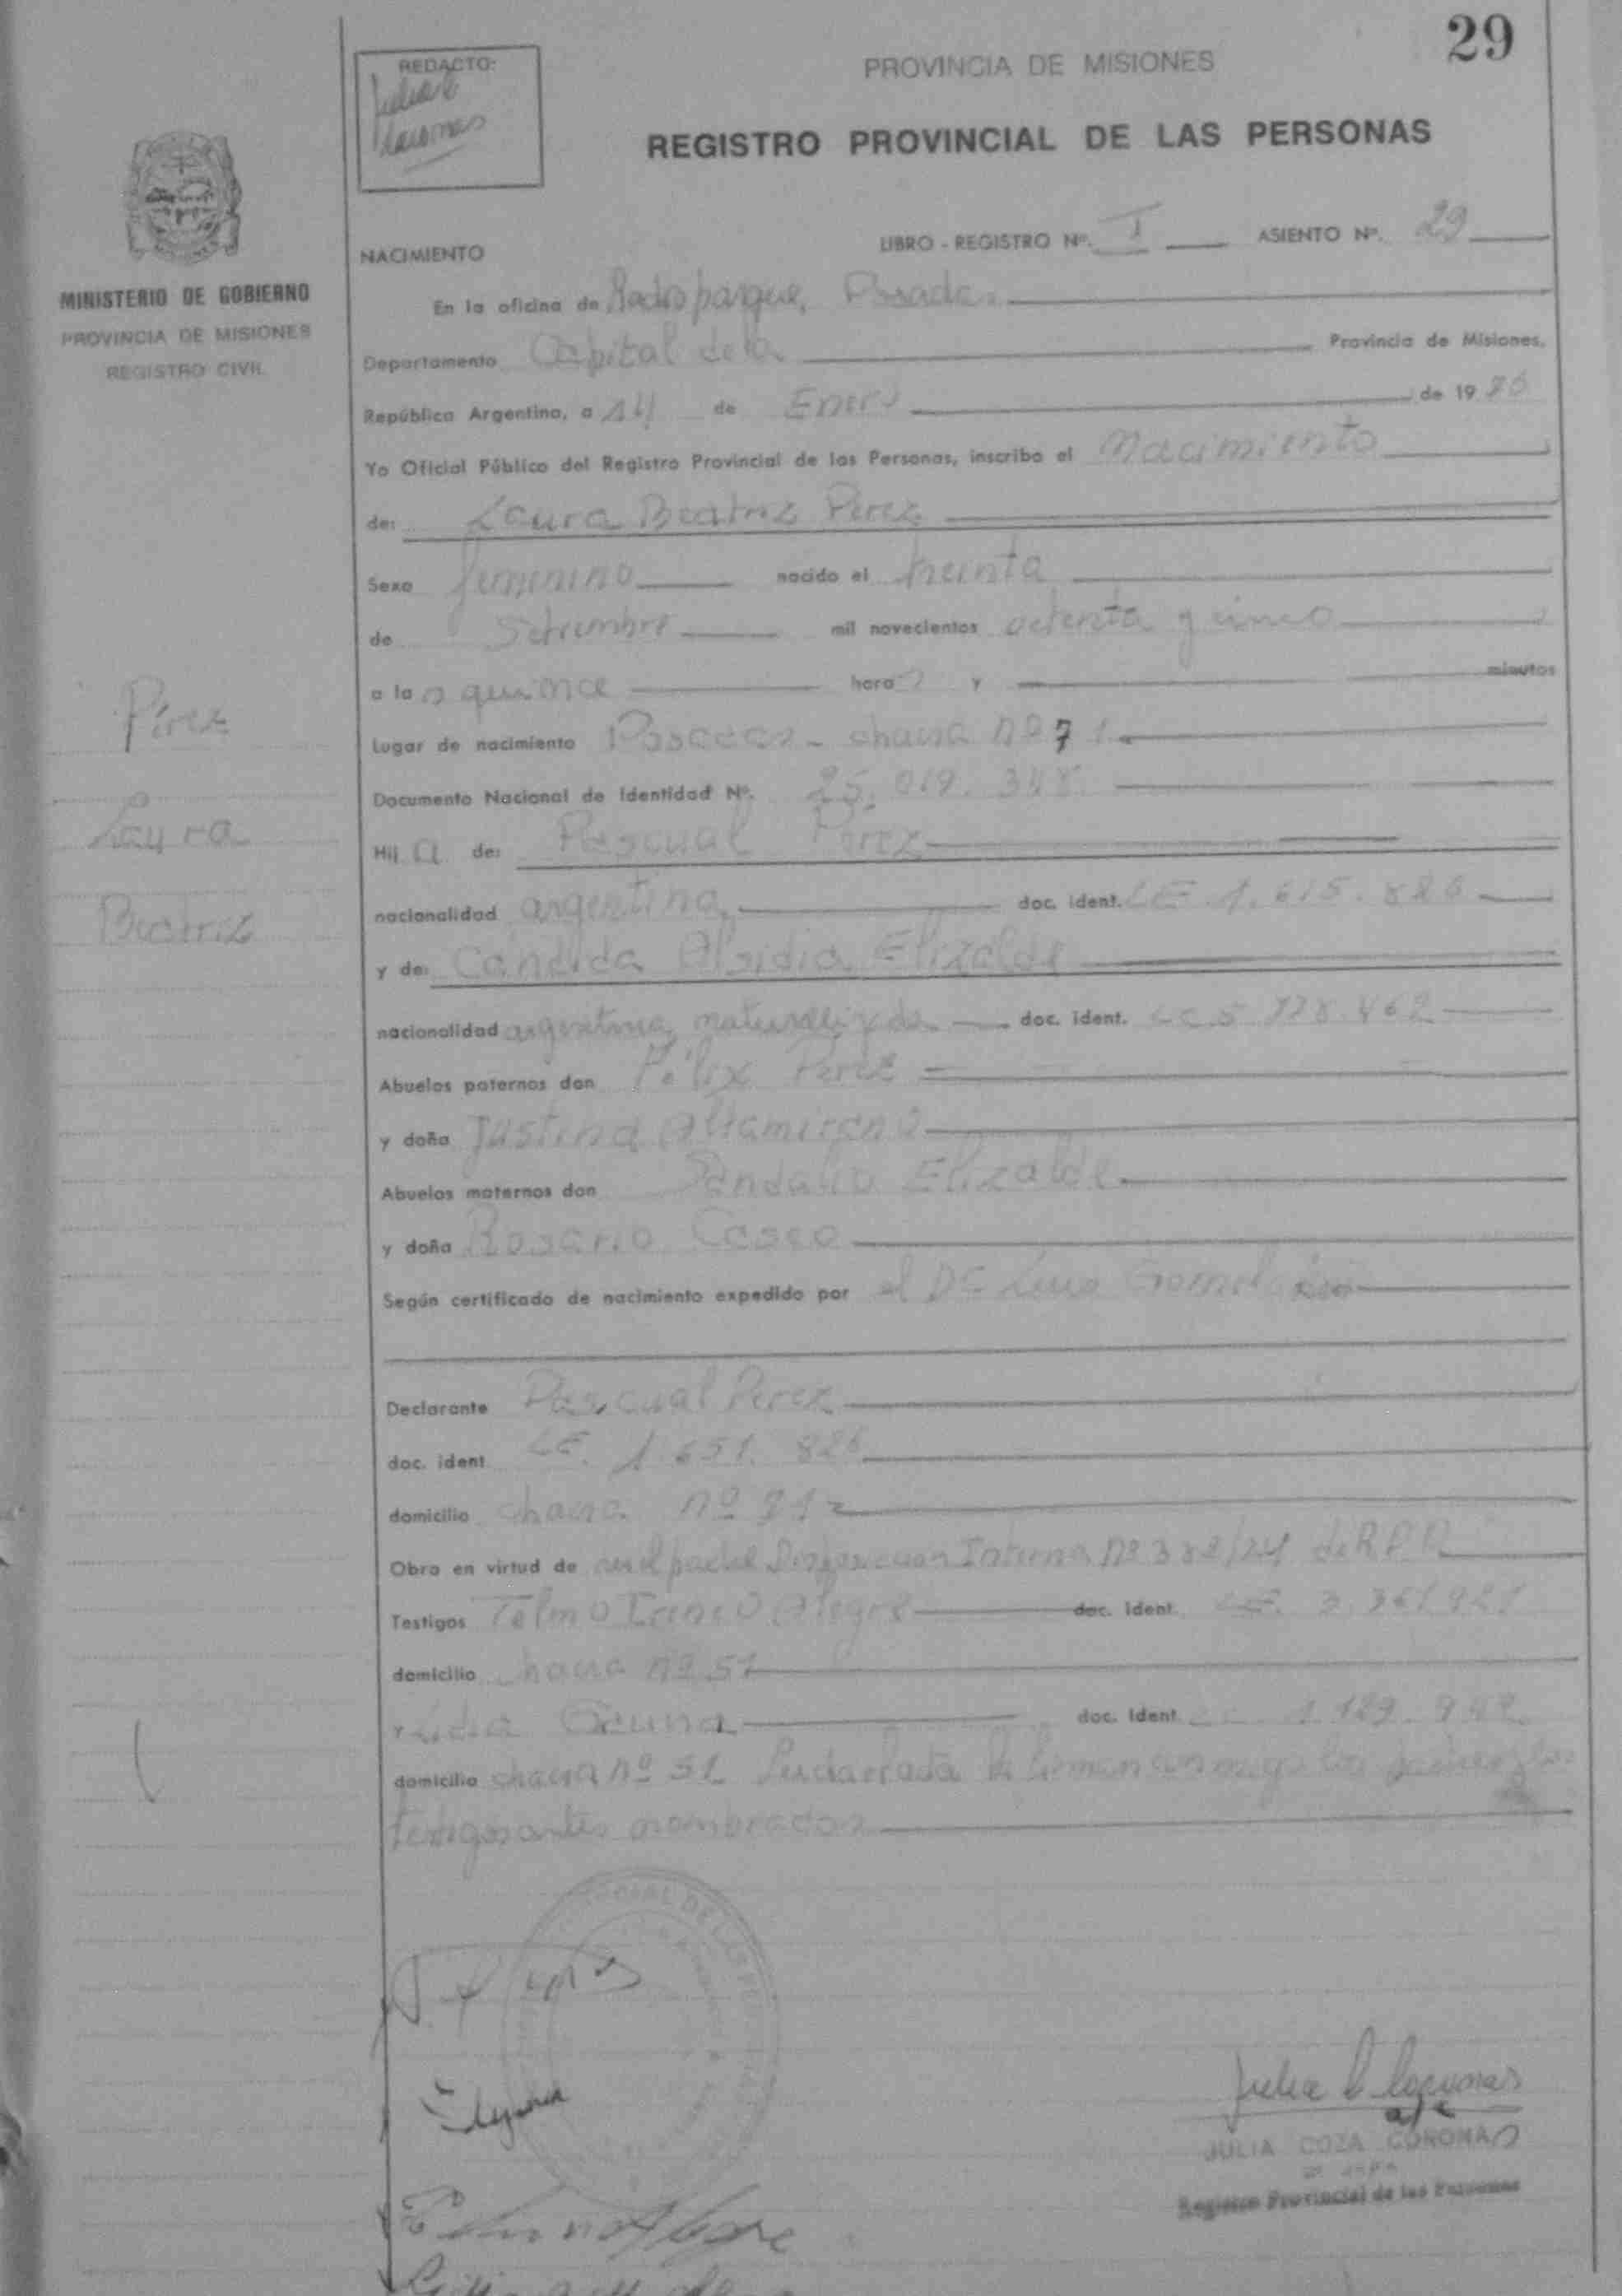 29
REDACTO:
Julia C
Coronas
PROVINCIA DE MISIONES
REGISTRO PROVINCIAL DE LAS PERSONAS
MINISTERIO DE GOBIERNO
PROVINCIA DE MISIONES
REGISTRO CIVIL
NACIMIENTO
LIBRO - REGISTRO Nº. I ASIENTO Nº. 29
En la oficina de Rodroparque, Posadas
Departamento Capital de la Provincia de Misiones,
República Argentina, a 14 de Enero de 19
Yo Oficial Público del Registro Provincial de las Personas, inscribo el Nacimiento
de: Laura Beatriz Perez
Sexo femenino nacido el treinta
de Setiembre mil novecientos setenta y cinco
a la s quince hora s y minutos
Lugar de nacimiento Posadas - chacra nº 71
Documento Nacional de Identidad Nº. 25.019.348
Hij a de: Pascual Perez
nacionalidad argentina doc. ident. LE 1.615.826
y de: Cándida Alsidia Elizalde
nacionalidad argentina naturalizada doc. ident. LC 5.728.462
Abuelos paternos don Félix Perez
y doña Justina Altamirano
Abuelos maternos don Sandalio Elizalde
y doña Rosario Casco
Según certificado de nacimiento expedido por el Dr Luis
Declarante Pascual Perez
doc. ident. LE. 1.651.826
domicilio chacra nº 71
Obro en virtud de Disposición Interna Nº 382/74 de R.P.P.
Testigos Telmo Alegre doc. ident. LE. 3.361.921
domicilio chacra nº 51
y Lidia Acuna doc. ident. LC 1.129.942
domicilio chacra nº 51 Leida el acta la firman conmigo los padres y los
testigos antes nombrados
Pérez
Laura
Beatriz
Julia C Coronas
JULIA COZA CORONAS
Registro Provincial de las Personas